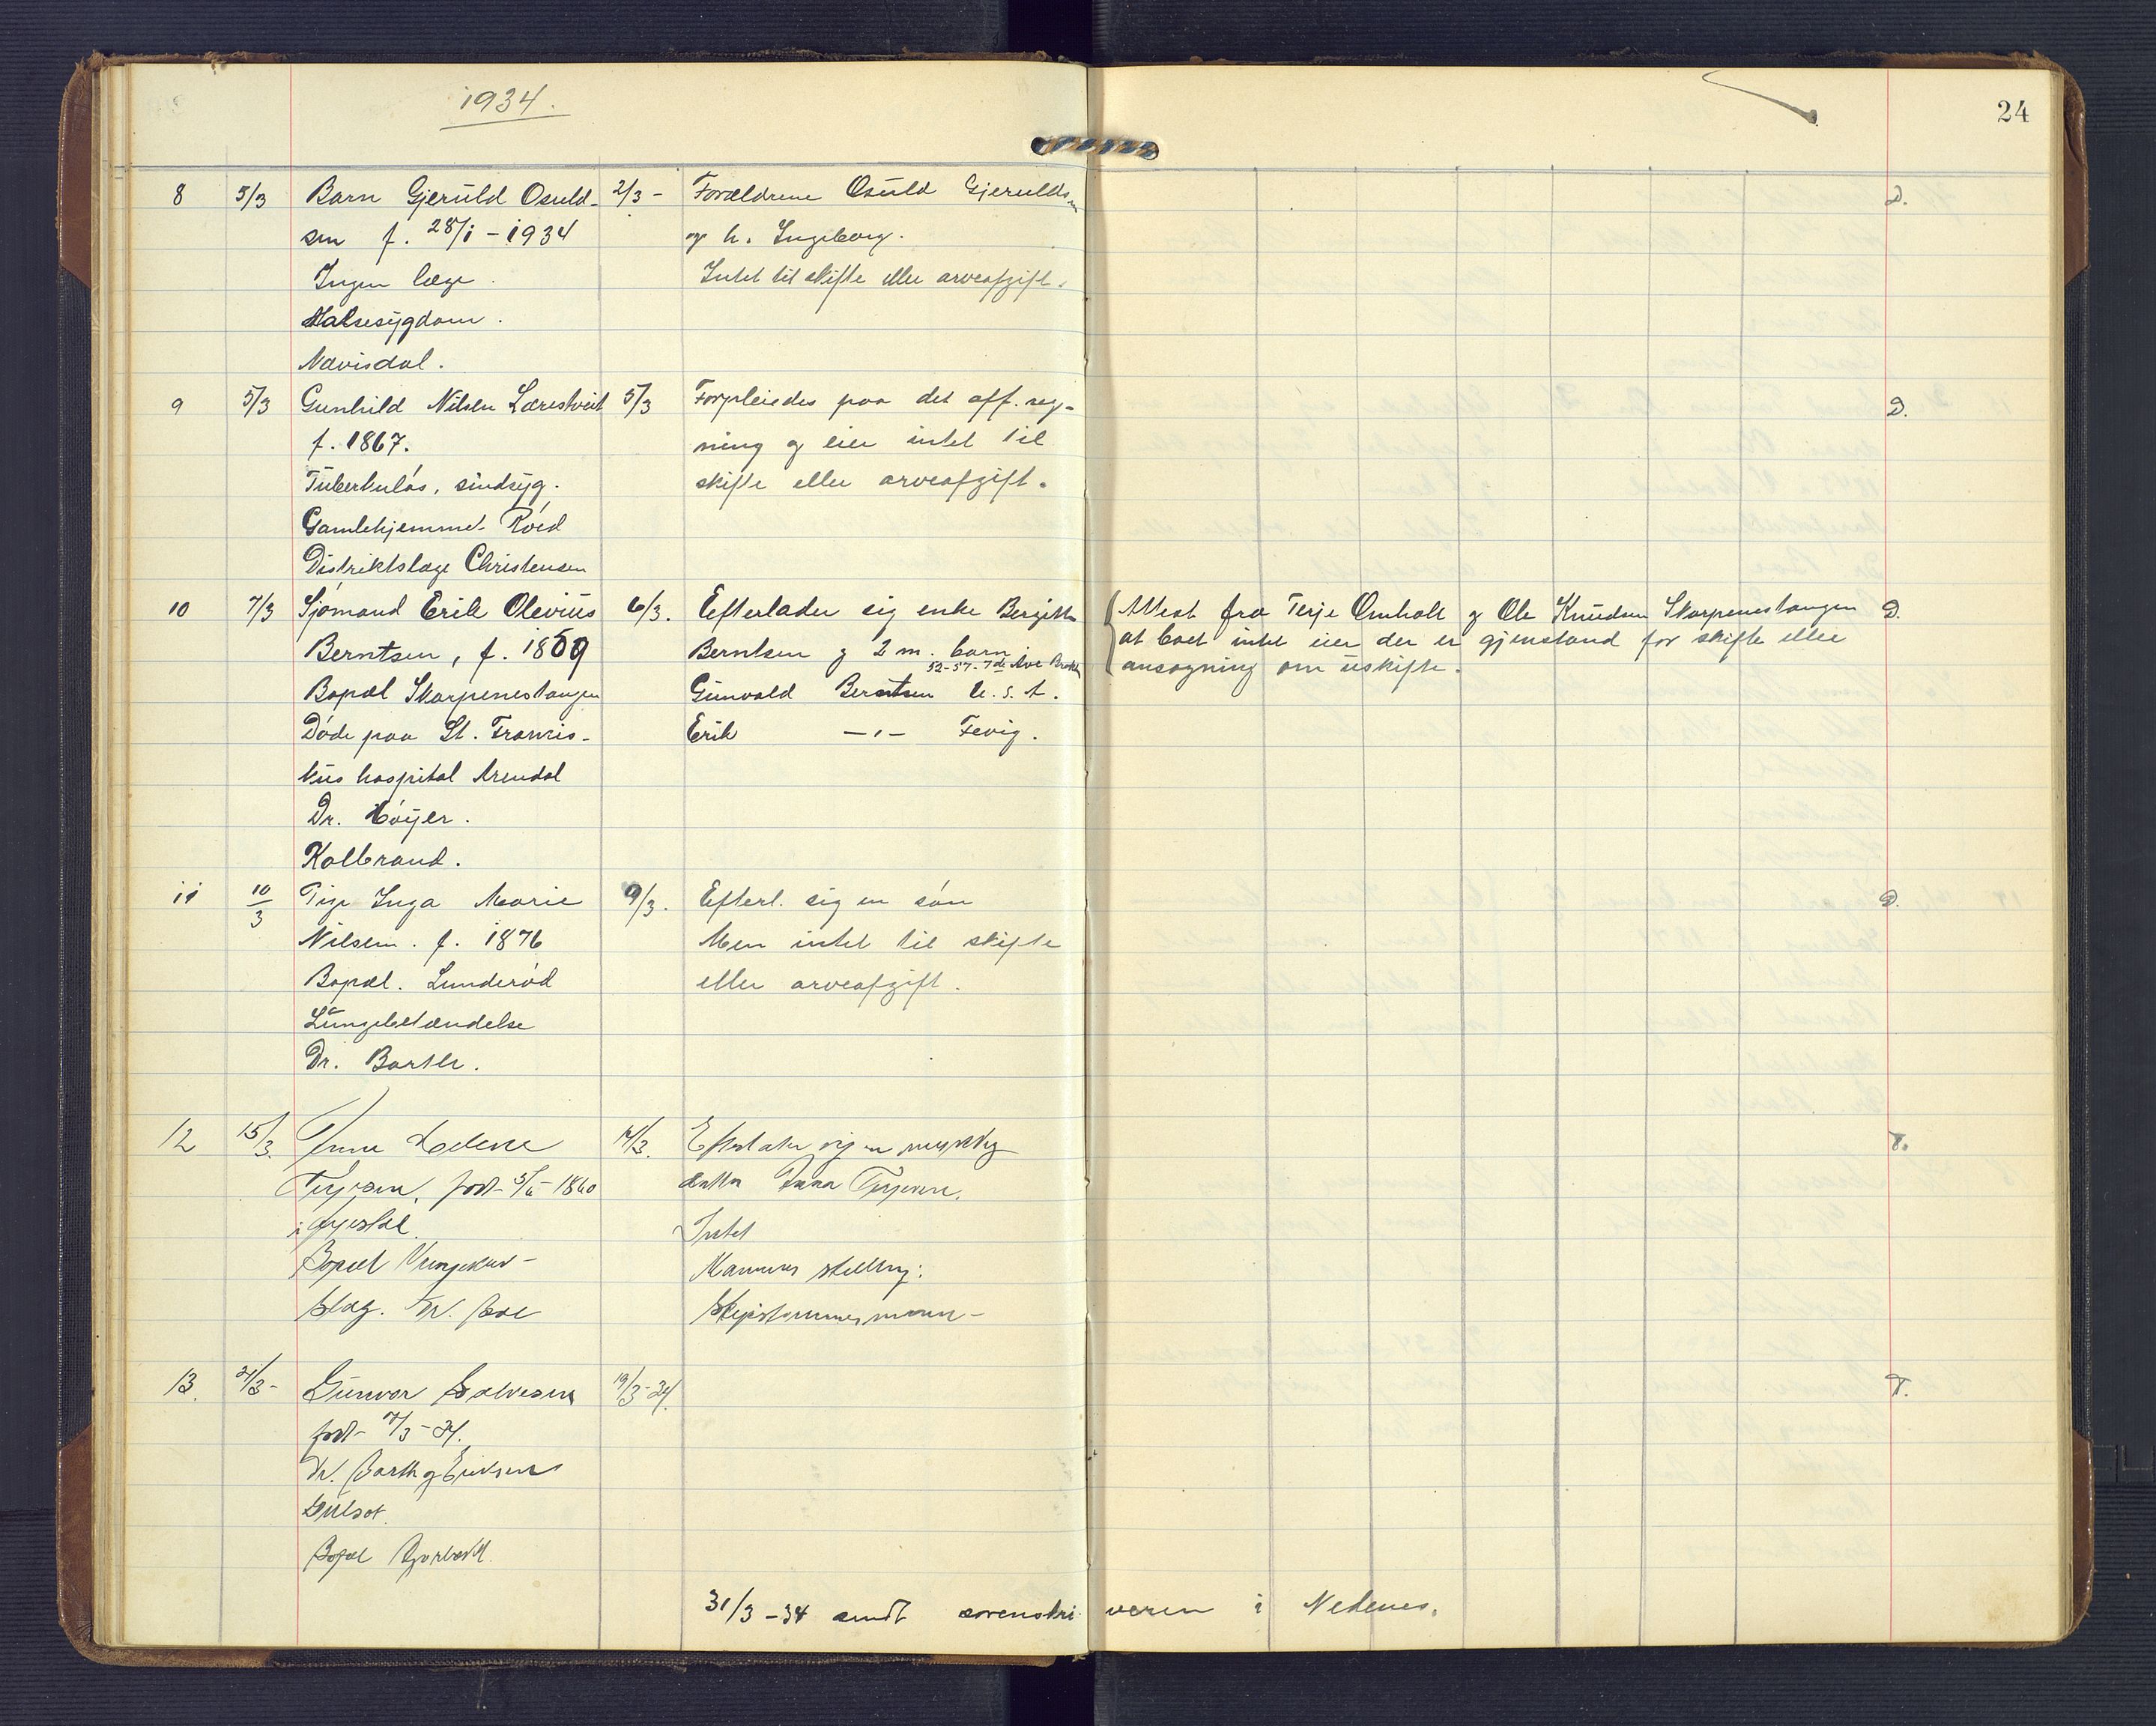 1934.
24
8 5/3 Barn Gjeruld Osuld- 2/3 - Forældrene Osuld Gjerulds. D.
sen f. 28/1 - 1934 og h. Ingeborg.
Ingen læge. Intet til skifte eller arveafgift.
Halsesygdom.
Nævisdal.
9 5/3 Gunhild Nilsen Lærestveit 5/3 Forpleiedes paa det off. reg- D.
f. 1867. ning og eier intet til
Tuberkuløs, sindsyg. skifte eller arveafgift.
Gamlehjemmet Röed
Distriktslæge Christensen
10 7/3 Sjømand Erik Olevius 6/3. Efterlader sig enke Bergitte Attest fra Terje Omholt og Ole Knudsen Skarpenestangen D.
Berntsen, f. 1859 Berntsen og 2 m. barn. at boet intet eier der er gjenstand for skifte eller
52-57-7de Ave Brokl ansøgning om uskifte.
Bopæl Skarpenestangen Gunvald Berntsen U.S.A.
Døde paa St. Francis- Erik -"- Fevig.
kus hospital Arendal
Dr. Høyer.
Kolbrand.
11 10/3 Pige Inga Marie 9/3. Efterl. sig en søn D.
Nilsen. f. 1876 Men intet til skifte
Bopæl. Lunderød eller arveafgift.
Lungebetændelse
Dr. Barth.
12 15/3. Anne Helene 14/3. Efterlater sig en myndig T.
Terjesen, født 5/6 - 1860 datter Anna Terjesen.
i Gjerstad. Intet
Bopæl Mannens stilling:
Slag. Dr. Boe Skipstømmermann-
13. 21/3- Gunvor Salvesen 19/3-34. T.
født 7/3-34.
Dr. Barth og Eriksen
Gulsot.
Bopæl
31/3-34 sendt sorenskriveren i Nedenes.